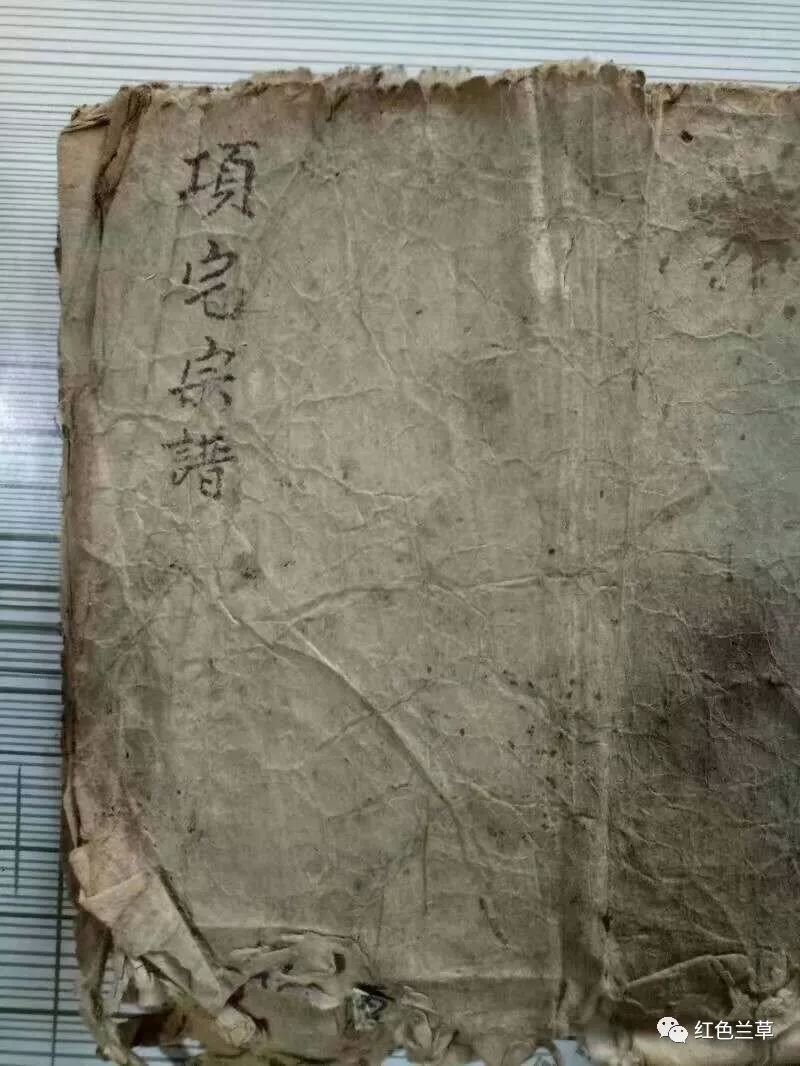 項宅宗譜
红色兰草